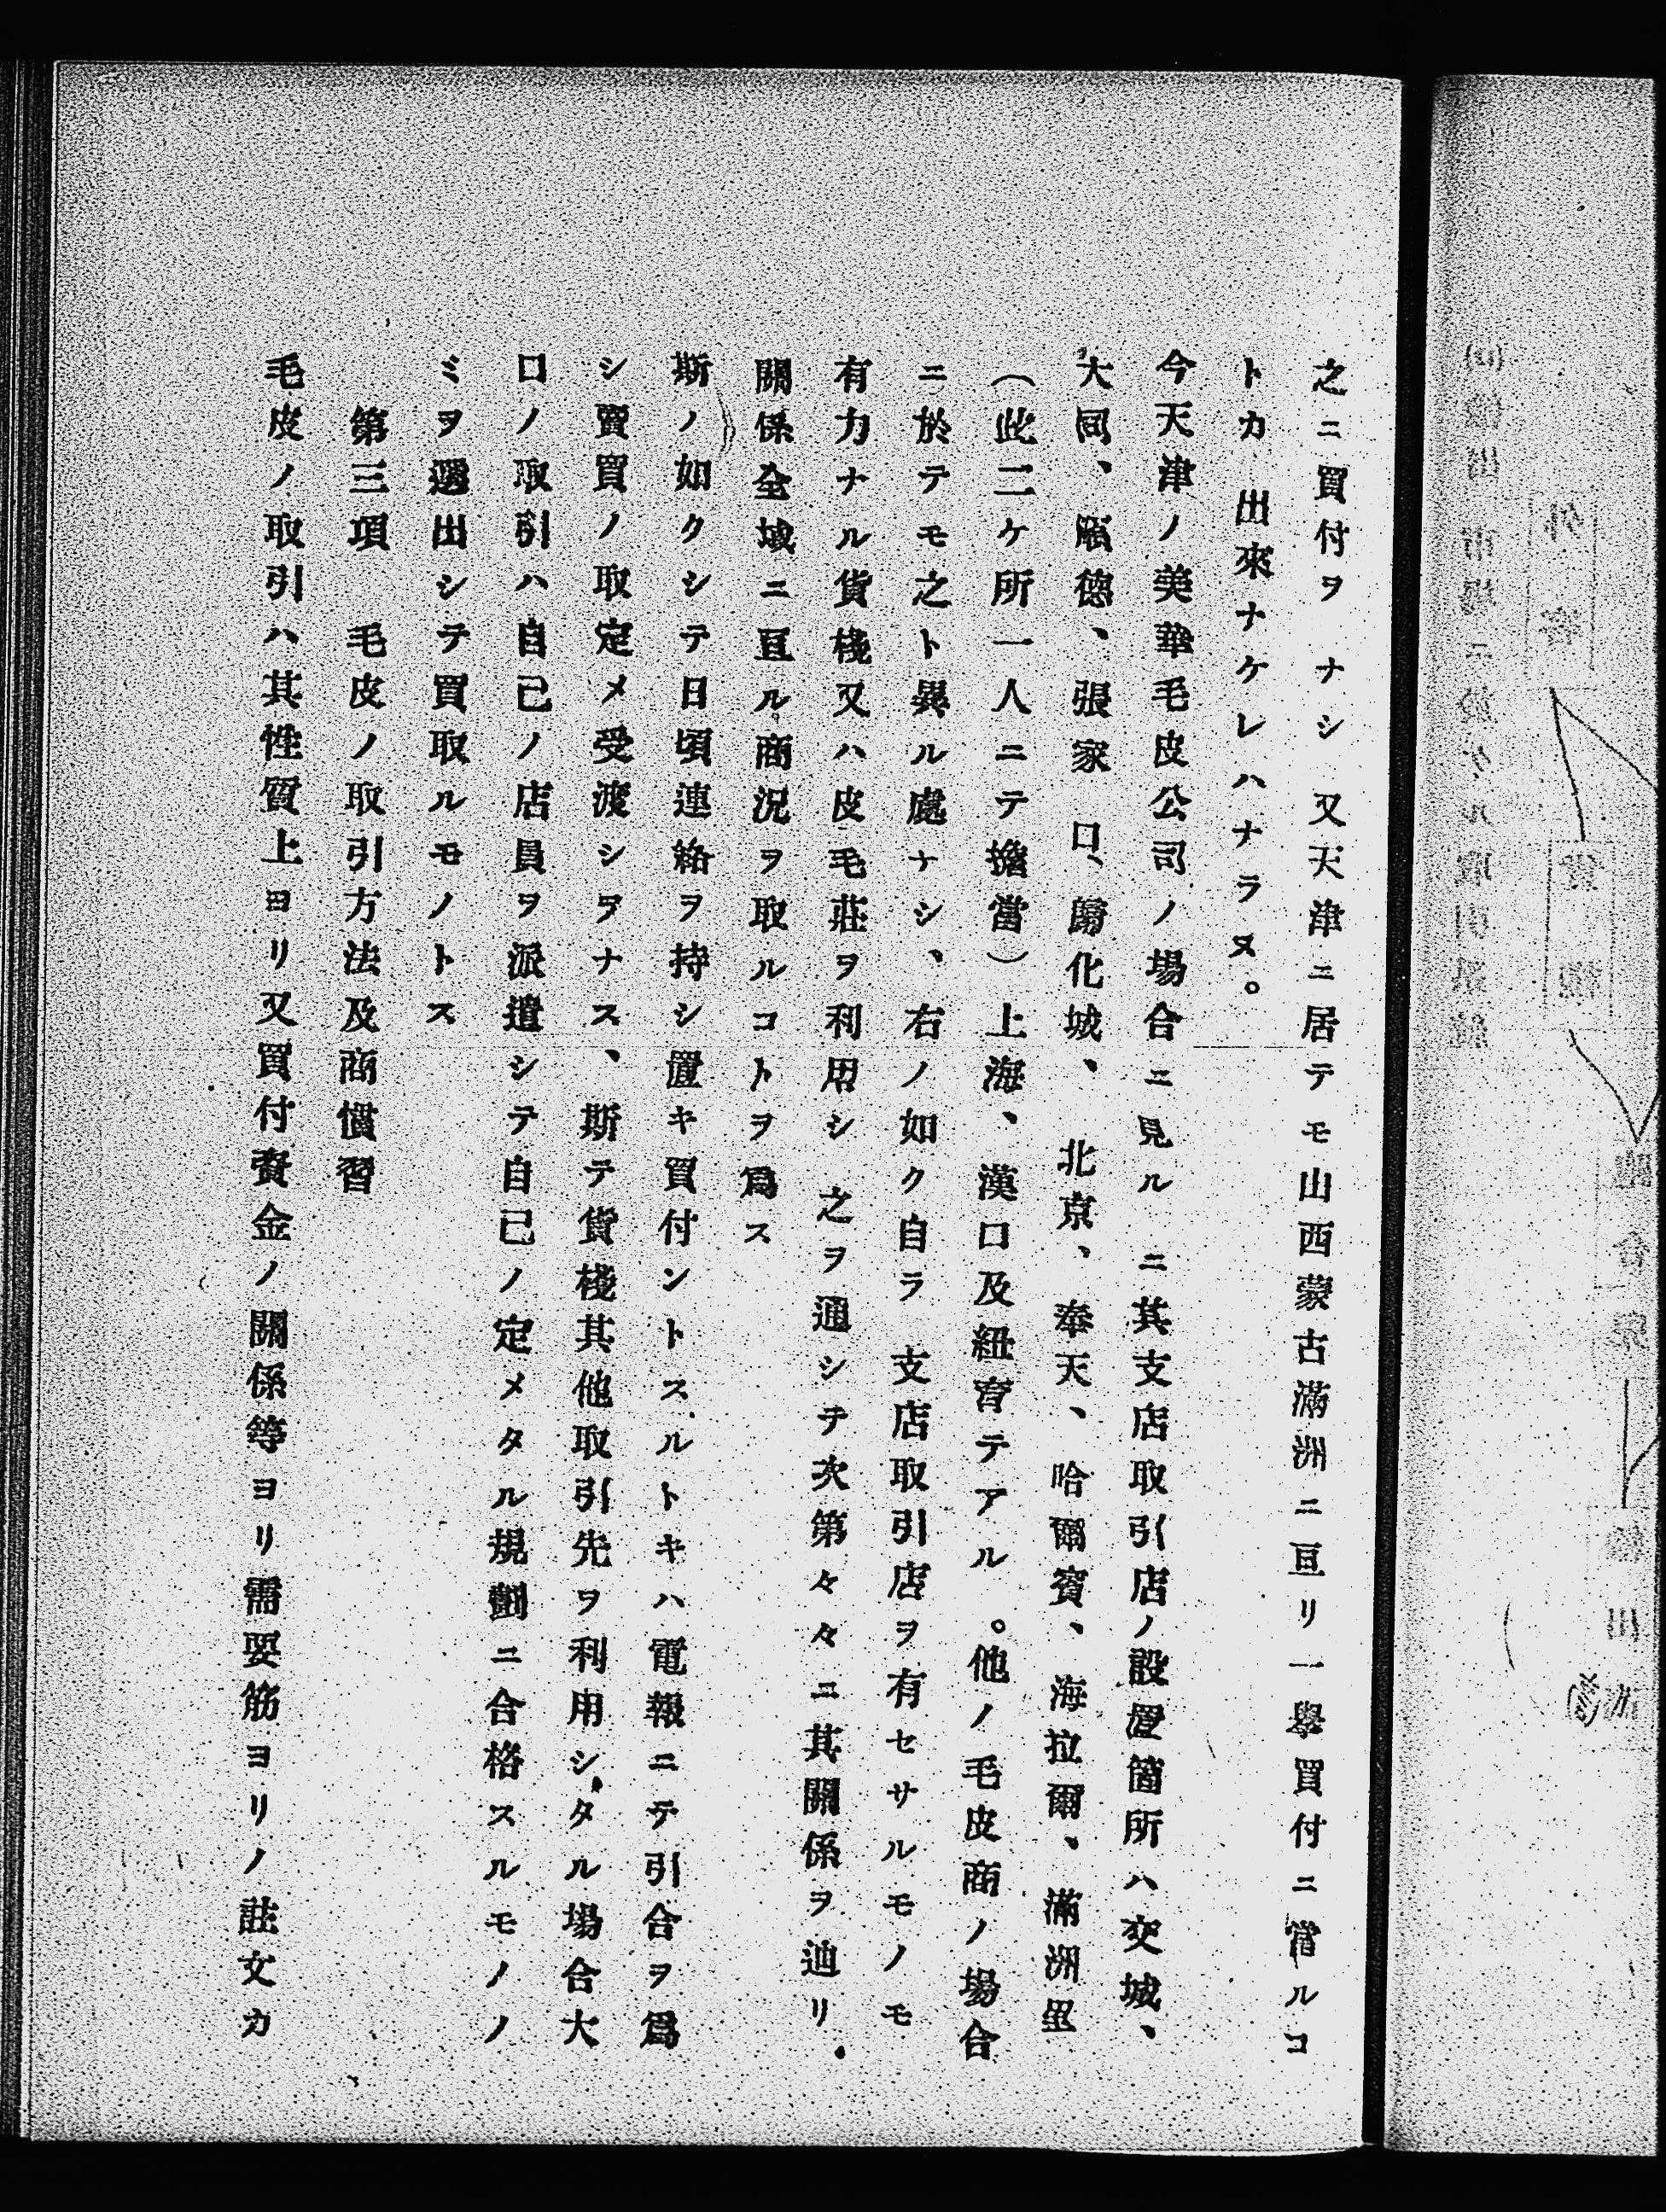 之ニ買付ヲナシ又天津ニ居テモ山西蒙古滿洲ニ亘リ一擧買付ニ當ルコ
トカ出來ナケレハナラヌ。
今天津ノ美華毛皮公司ノ場合ニ見ルニ其支店取引店ノ設置箇所ハ交城、
大同、順德、張家口、歸化城、北京、奉天、哈爾賓、海拉爾、滿洲里
（此二ケ所一人ニテ擔當）上海、漢口及紐育テアル。他ノ毛皮商ノ場合
ニ於テモ之ト異ル處ナシ、右ノ如ク自ラ支店取引店ヲ有セサルモノモ
有力ナル貨棧又ハ皮毛莊ヲ利用シ之ヲ通シテ次第々々ニ其關係ヲ辿リ
關係全城ニ亘ル。商況ヲ取ルコトヲ爲ス
斯ノ如クシテ日頃連絡ヲ持シ置キ買付ントスルトキハ電報ニテ引合ヲ爲
シ賣買ノ取定メ受渡シヲナス、斯テ貨棧其他取引先ヲ利用シタル場合大
口ノ取引ハ自己ノ店員ヲ派遣シテ自己ノ定メタル規劃ニ合格スルモノノ
ミヲ選出シテ買取ルモノトス
第三項　毛皮ノ取引方法及商慣習
毛皮ノ取引ハ其性質上ヨリ又買付資金ノ關係等ヨリ需要筋ヨリノ註文カ